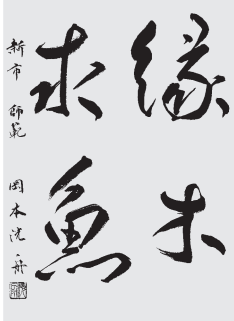 縁木
求魚
新市 師範 岡本洗舟